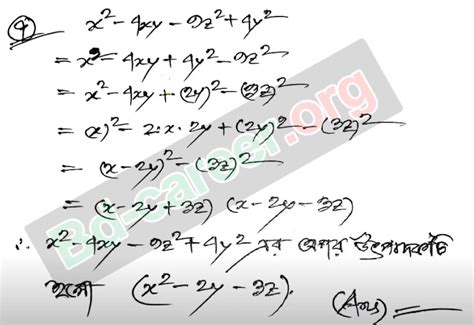 ④ x² - 4xy - 9z² + 4y²
= x² - 4xy + 4y² - 9z²
= x² - 4xy + (2y)² - (3z)²
= (x)² - 2·x·2y + (2y)² - (3z)²
= (x - 2y)² - (3z)²
= (x - 2y + 3z) (x - 2y - 3z)
∴ x² - 4xy - 9z² + 4y² এর অপর উৎপাদকটি
হলো (x² - 2y - 3z). (Ans)
Bd-career.org